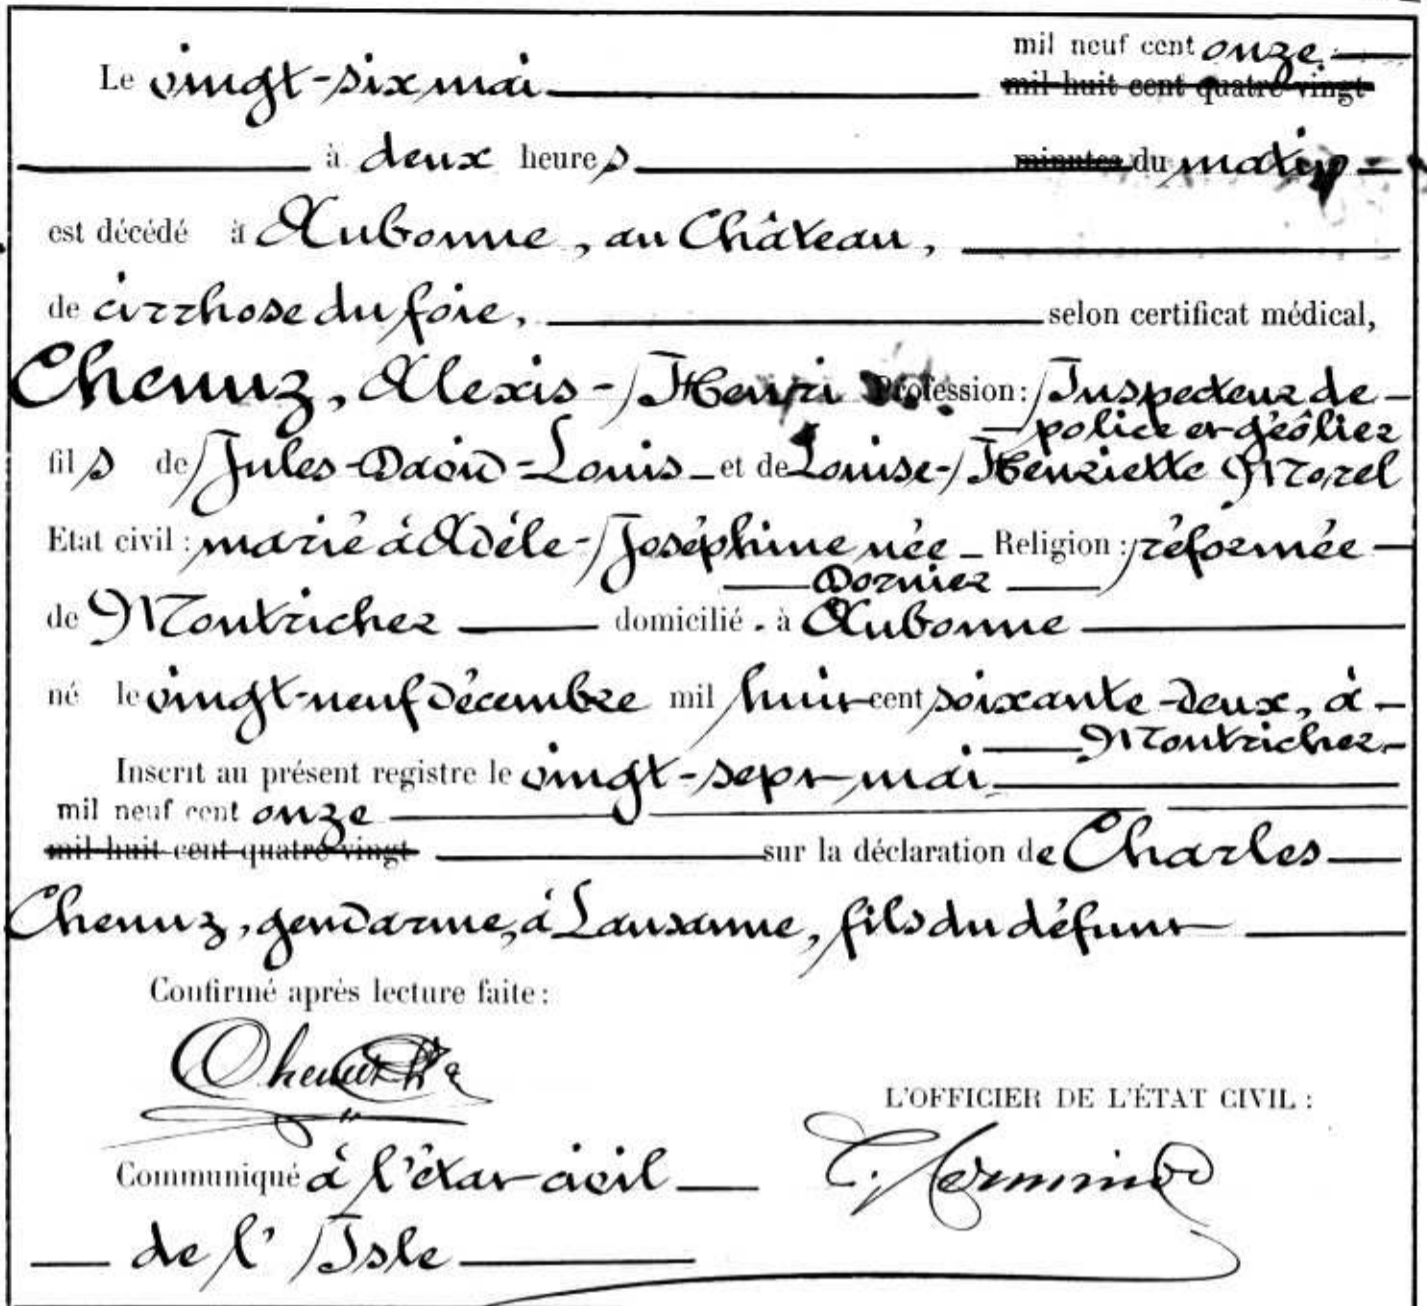 mil neuf cent onze.
Le vingt-six mai mil huit cent quatre-vingt
à deux heures minutes du matin
est décédé à Aubonne, au Château,
de cirrhose du foie, selon certificat médical,
Chenuz, Alexis-Henri Profession: Inspecteur de
police et geôlier
fils de Jules-David-Louis et de Louise-Henriette Morel
Etat civil: marié à Adèle-Joséphine née Religion: réformée
Dornier
de Montricher domicilié. à Aubonne
né le vingt-neuf décembre mil huit cent soixante-deux, à
Montricher
Inscrit au présent registre le vingt-sept mai
mil neuf cent onze
mil huit cent quatre-vingt sur la déclaration de Charles
Chenuz, gendarme, à Lausanne, fils du défunt
Confirmé après lecture faite:
Chenuz
L'OFFICIER DE L'ÉTAT CIVIL:
Communiqué à l'état civil
de l'Isle